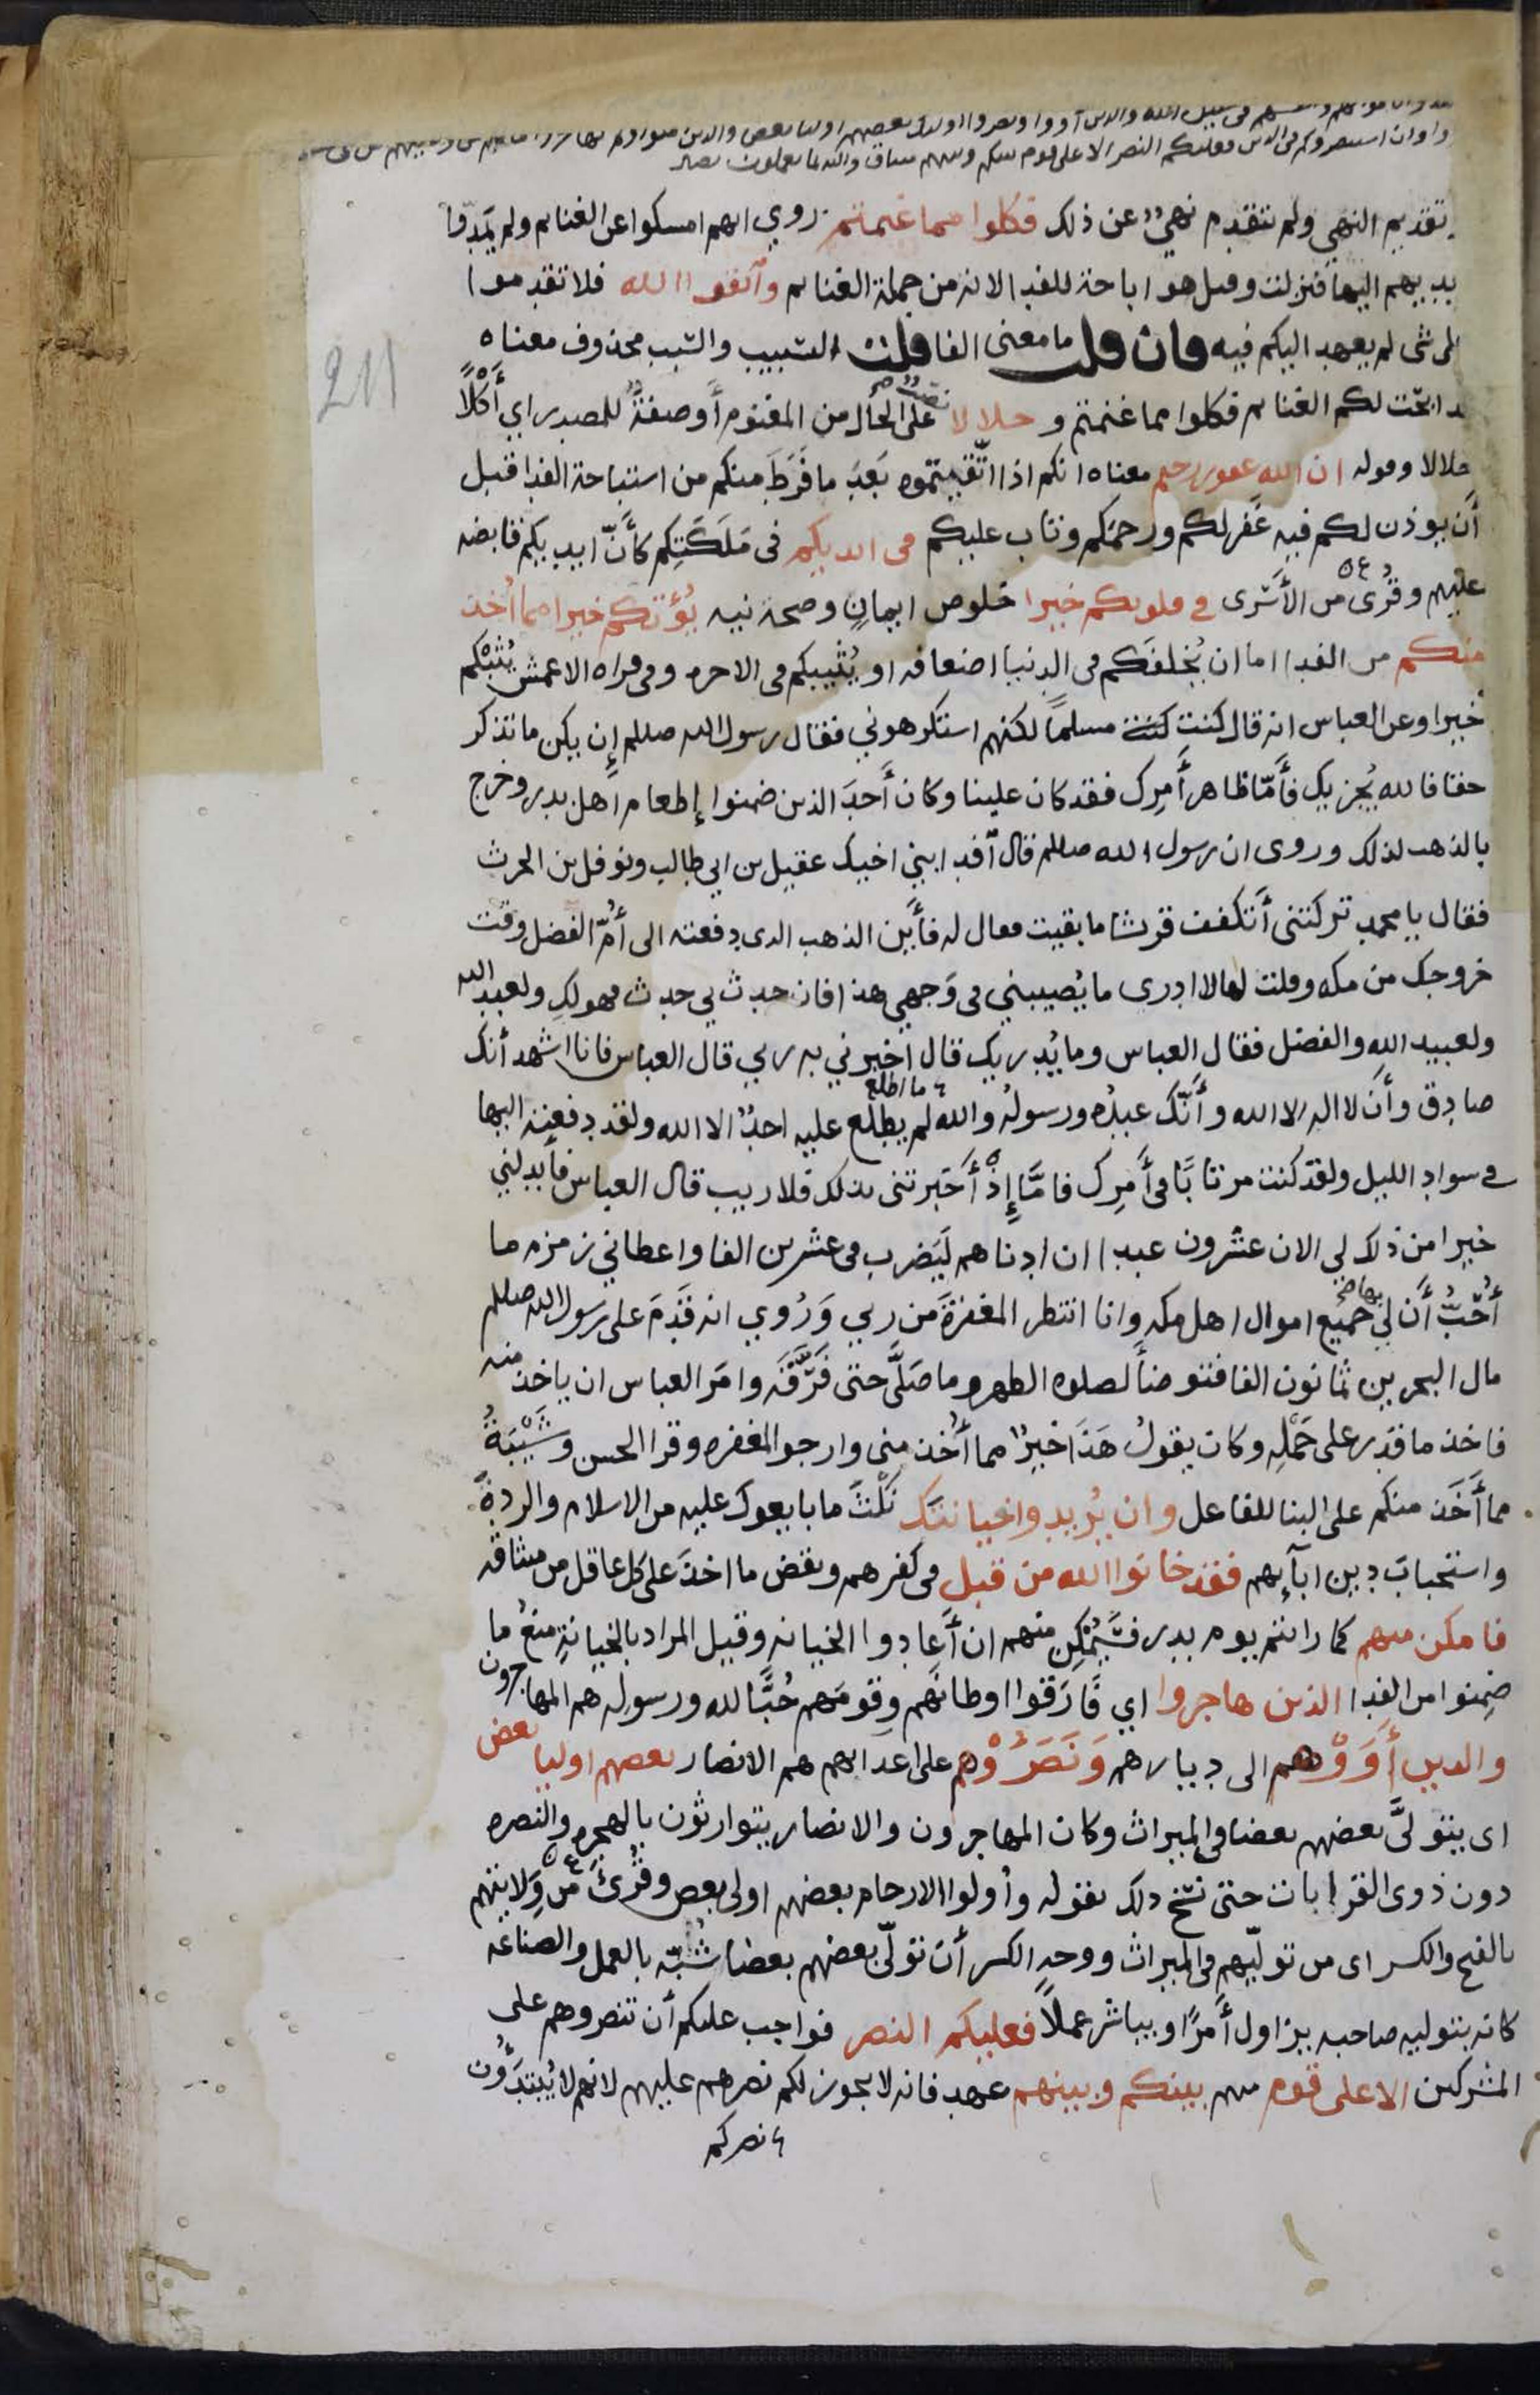 في سبيل الله والذين آووا ونصروا اولئك بعضهم اوليا بعض والذين
وان استنصروكم في الدين فعليكم النصر الا على قوم بينكم وبينهم ميثاق والله بما تعملون بصير
تقديم النهي ولم يتقدم نهيٌ عن ذلك فكلوا مما غنمتم روي انهم امسكوا عن الغنايم ولم يمدّوا
يديهم اليها فنزلت وقيل هو اباحة للفدا لانه من جملة الغنايم واتقوا الله فلا تقدموا
على شي لم يعهد اليكم فيه فان قلت ما معنى الفا قلت التسبيب والسّبب محذوف معناه
قد ابحت لكم الغنايم فكلوا مما غنمتم وحلالا نصب على الحال من المغنوم أو صفةٌ للمصدر اي أَكْلًا
حلالا وقوله ان الله غفور رحيم معناه انكم اذا اتّقيتموه بَعدَ ما فَرَطَ منكم من استباحة الفدا قبل
أن يوذن لكم فيه غَفر لكم ورحمكم وتاب عليكم في ايديكم في مَلَكَتِكم كأنّ ايديكم قابضه
عليهم وقُرئ من الأَسْرى في قلوبكم خيرا خلوص ايمانٍ وصحة نيه يُؤتكم خيرا مما أُخذ
منكم من الفدا اما ان يُخلفَكم في الدنيا اضعافه او يُثيبكم في الاخره وفي قراه الاعمش يُثبْكم
خيرا وعن العباس انه قال كنت كنت مسلمًا لكنهم استكرهوني فقال رسول الله صللم إن يكن ما تذكر
حقا فالله يُجزيك فأمّا ظاهر أَمرِك فقد كان علينا وكان أحدَ الذين ضمنوا إطعام اهل بدر وخرج
بالذهب لذلك وروى ان رسول الله صللم قال آفد ابني اخيك عقيل بن ابي طالب ونوفل بن الحرث
فقال يا محمد تركتني أَتكفف قريشا ما بقيت فقال له فأَين الذهب الذي دفعته الى أمّ الفضل وقت
خروجك من مكه وقلت لها لا ادري ما يُصيبني في وَجهي هذا فان حدث بي حدث فهو لكِ ولعبد الله
ولعبيد اللهِ والفضل فقال العباس وما يُدريك قال اخبرني به ربي قال العباس فانا اشهد أنك
صادق وأن لا اله الا الله وأَنّك عبدُه ورسولُه والله لم يطلع عليه احدٌ الا الله ولقد دفعته اليها
ما اطلع
في سواد الليل ولقد كنت مرتابًا في أَمرِك فامّا إِذْ أَخبرتني بذلك فلا ريب قال العباس فأبدلني
خيرا من ذلك لي الان عشرون عبدا ان ادناهم لَيَضرب في عشرين الفا واعطاني زمزم ما
أُحبُّ أَن لي بها جميع اموال اهل مكه وانا انتظر المغفرةَ من ربي وَرُوي انه قَدِمَ على رسول الله صللم
مال البحرين ثمانون الفا فتوضأَ لصلوه الظهر وما صَلَّى حتى فَرَّقَه وامَر العباس ان ياخذ منه
فاخذ ما قدر على حَمْلِه وكان يقولُ هَذَا خيرٌ مما أُخذ مني وارجو المغفره وقرا الحسن وشَيْبَةُ
مما أَخَذ منكم على البنا للفاعل وان يُريدوا خيانتك نَكْثَ ما بايعوك عليه من الاسلام والردةَ
واستحبابَ دين ابآئهم فقد خانوا الله من قبل في كفرهم ونقض ما اخذَ على كل عاقل من ميثاقه
فامكن منهم كما رايتم يوم بدر فسَيُمْكِن منهم ان أَعادوا الخيانه وقيل المراد بالخيانةِ منعُ ما
ضَمِنوا من الفدا الذين هاجروا اي فَارَقوا اوطانَهم وقومَهم حُبًّا لله ورسولِه هم المهاجرون
والذين أَوَوْهم الى ديارهم وَنَصَرُوْهم على اعدائهم هم الانصار بعضهم اوليا بعض
اى يتولّى بعضهم بعضا في الميراث وكان المهاجرون والانصار يتوارثون بالهجره والنصره
دون ذوى القرابات حتى نسخ ذلك بقوله وأُولوا الارحام بعضهم اولى ببعض وقُرئَ من وَلايتهم
بالفتح والكسر اى من تولّيهم في الميراث ووجه الكسر أن تولّى بعضهم بعضا شُبّه بالعمل والصناعه
كانه بتوليه صاحبه يزاول أَمرًا ويباشر عملًا فعليكم النصر فواجب عليكم أن تنصروهم على
المشركين الا على قوم منهم بينكم وبينهم عهد فانه لا يجوز لكم نصرهم عليهم لانهم لا يُبتَدَؤُن
نصركم
211